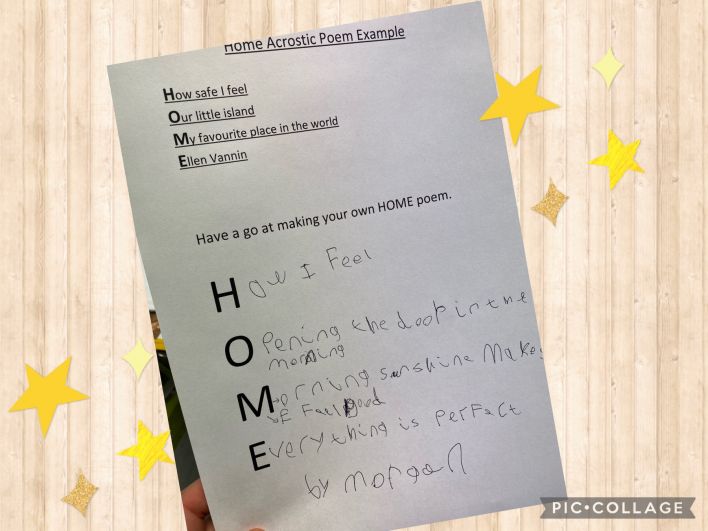 Home Acrostic Poem Example
How safe I feel
Our little island
My favourite place in the world
Ellen Vannin
Have a go at making your own HOME poem.
How I Feel
Opening the door in the
morning
Morning sunshine Make
Feel good
Everything is perfect
by morgan
PIC•COLLAGE